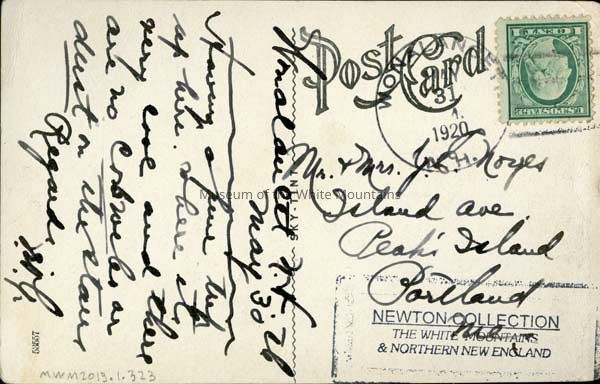 Post Card
WONALANCET
MAY
31
1920
N.H.
1 CENT 1
Wonalancet N.H.
May 30 - 20
Having a fine trip
up here. where it's
very cool and there
are no cobwebs or
dust on the stairs
Regards
Mr. & Mrs. J. C. Noyes
Island Ave.
Peaks Island
Portland
Me.
Museum of the White Mountains
NEWTON COLLECTION
THE WHITE MOUNTAINS
& NORTHERN NEW ENGLAND
MWM2013.1.323